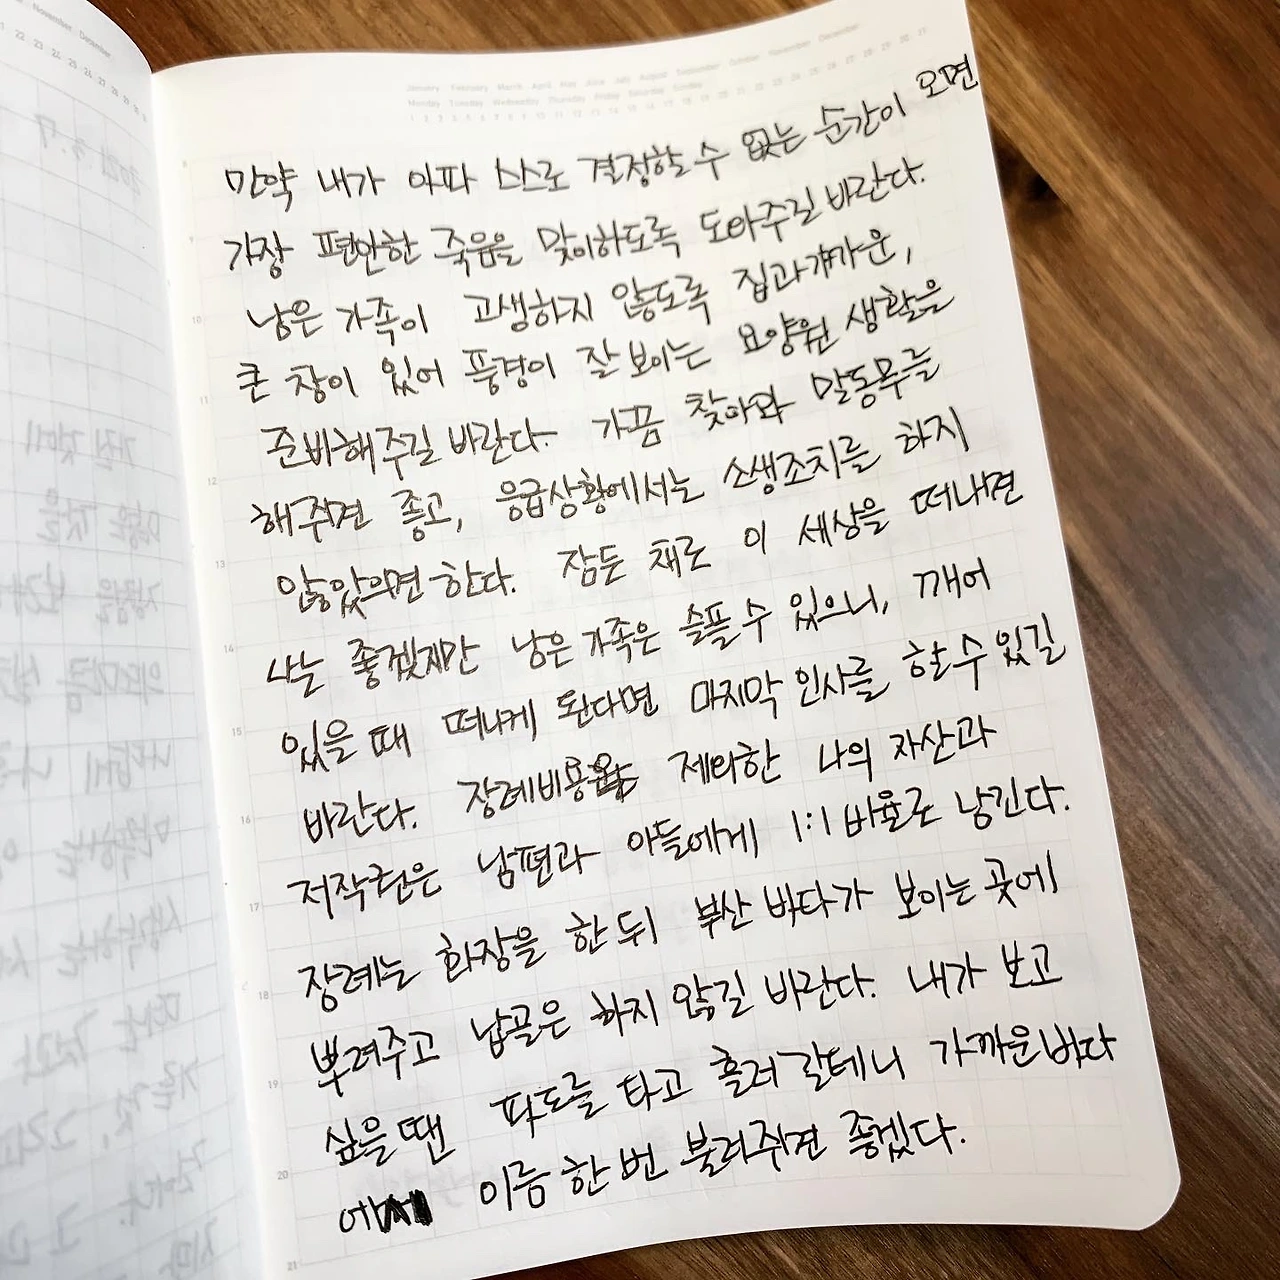 November December
January February March April May June July August September October November December
Monday Tuesday Wednesday Thursday Friday Saturday Sunday
만약 내가 아파 스스로 결정할 수 없는 순간이 오면
가장 편안한 죽음을 맞이하도록 도와주길 바란다.
남은 가족이 고생하지 않도록 집과 가까운,
큰 창이 있어 풍경이 잘 보이는 요양원 생활을
준비해주길 바란다. 가끔 찾아와 말동무를
해주면 좋고, 응급상황에서는 소생조치를 하지
않았으면 한다. 잠든 채로 이 세상을 떠나면
나는 좋겠지만 남은 가족은 슬플 수 있으니, 깨어
있을 때 떠나게 된다면 마지막 인사를 할 수 있길
바란다. 장례비용을 제외한 나의 자산과
저작권은 남편과 아들에게 1:1 비율로 남긴다.
장례는 화장을 한 뒤 부산 바다가 보이는 곳에
뿌려주고 납골은 하지 않길 바란다. 내가 보고
싶을 땐 파도를 타고 흘러 갈테니 가까운 바다
에서 이름 한 번 불러주면 좋겠다.